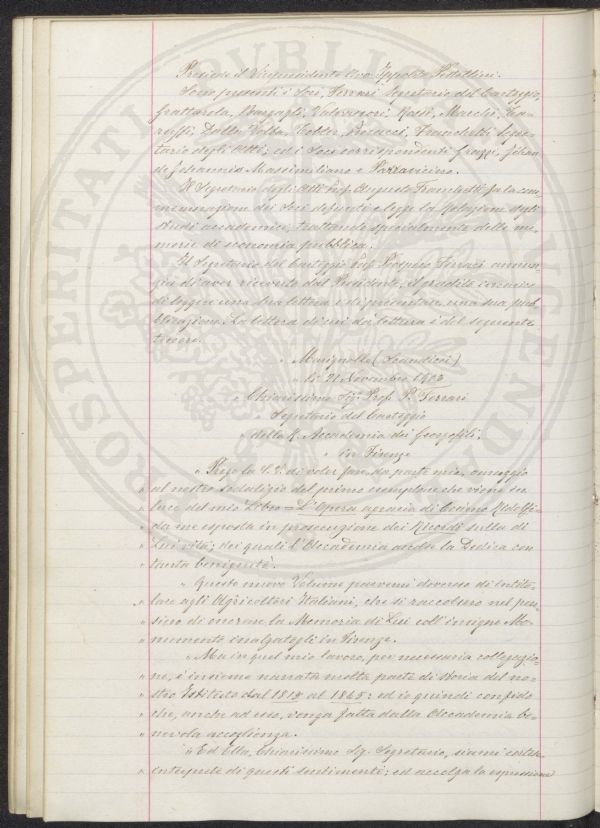 Presiede il Vicepresidente Avv. Ippolito Pestellini.
Sono presenti i Soci, Ferrari Segretario del Carteggio,
Grattarola, Bargagli, Valvassori, Rossi, Marchi, Ta-
ruffi, Dalla Volta, Bosacci, Franchetti Segre-
tario degli Atti; ed i Soci corrispondenti Grazzi,
de Johannis Massimiliano e Parravicino.
Il Segretario degli Atti Prof. Augusto Franchetti fa la com-
memorazione dei Soci defunti e legge la Relazione degli
studi accademici, trattando specialmente delle me-
morie di economia pubblica.
Il Segretario del Carteggio Prof. Prospero Ferrari annun-
zia di aver ricevuto dal Presidente, il gradito incarico
di leggere una sua lettera e di presentare una sua pub-
blicazione. La lettera di cui dà lettura è del seguente
tenore.
" Marignolle (Scandicci)
" Lì 21 Novembre 1903
" Chiarissimo Sig. Prof. P. Ferrari
" Segretario del Carteggio
" della R. Accademia dei Georgofili.
" in Firenze
" Prego la S. V. di voler fare, da parte mia, omaggio
" al nostro Sodalizio del primo esemplare che viene in
" luce del mio Libro = L'Opera agraria di Cosimo Ridolfi =
" da me esposta in prosecuzione dei Ricordi sulla di
" Lui vita; dei quali l'Accademia accettò la Dedica con
" tanta benignità.
" Questo nuovo Volume parvemi doveroso di intito-
" lare agli Agricoltori Italiani, che si raccolsero nel pen-
" siero di onorare la Memoria di Lui coll'insigne Mo-
" numento inalzatogli in Firenze.
" Ma in quel mio lavoro, per necessaria collegazio-
" ne, è insieme narrata molta parte di storia del no-
" stro Istituto dal 1813 al 1865: ed io quindi confido
" che, anche ad esso, venga fatta dalla Accademia be-
" nevola accoglienza.
" Ed Ella, Chiarissimo Sig. Segretario, siami cortese
" interprete di questi sentimenti; ed accolga la espressione
PROSPERITATI PUBLICAE AUGENDAE